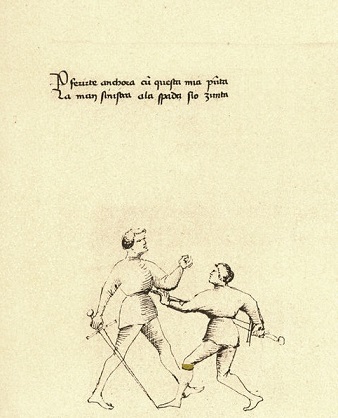 P ferirte anchora cũ questa mia pũta
La man sinistra ala spada sio zunta